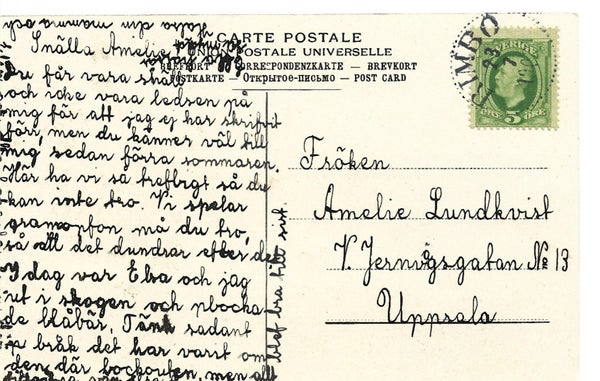 CARTE POSTALE
UNION POSTALE UNIVERSELLE
BREFKORT — CORRESPONDENZKARTE — BREVKORT
POSTKARTE — Открытое-письмо — POST CARD
RIMBO
SVERIGE
5
ÖRE
Snälla Amelie
Du får vara snäll
och icke vara ledsen på
mig för att jag ej har skrifvit
förr, men du känner väl till
mig sedan förra sommaren.
Här ha vi så trefligt så du
kan inte tro. Vi spelar
gramofon må du tro,
så att det dundrar efter de
I dag var Elsa och jag
ut i skogen och plocka-
de blåbär. Tänk sådant
bråk det har varit om
den där bockouten, men allt
blef bra till sist.
Fröken
Amelie Lundkvist
V. Jernvgsgatan № 13
Uppsala